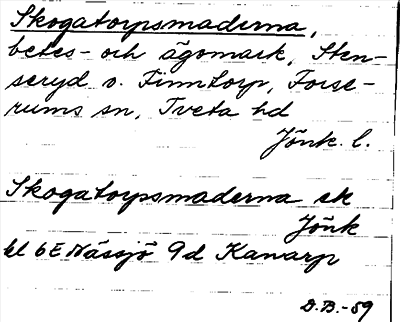 Skogatorpsmaderna,
betes- och ägomark, Sten-
seryd o. Finntorp, Forse-
rums sn, Tveta hd
Jönk. l.
Skogatorpsmaderna ek
Jönk
bl 6E Nässjö 9d Kanarp
D.B.-59